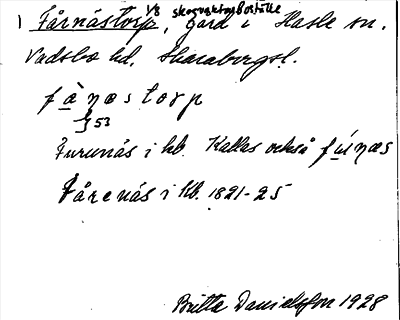 1 Fårnästorp, 1/8 skogvaktarboställe, gård i Hasle sn.
Vadsbo hd. Skarabergsl.
fånæstorp
§ 53
Furunäs i kb. Kallas också fúnæs
Fårenäs i kb. 1821-25
Britta Danielsson 1928